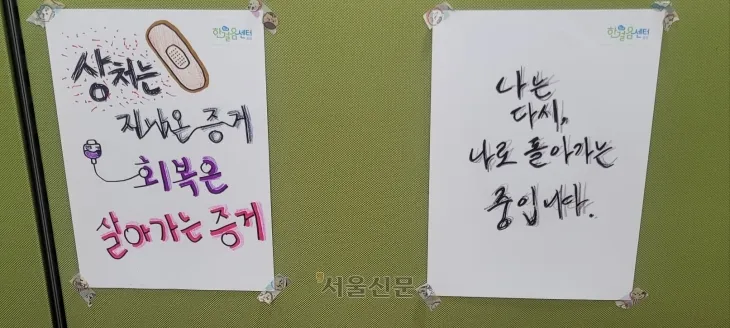 한걸음센터
상처는
지나온 증거
회복은
살아가는 증거
한걸음센터
나는
다시,
나로 돌아가는
중입니다.
서울신문